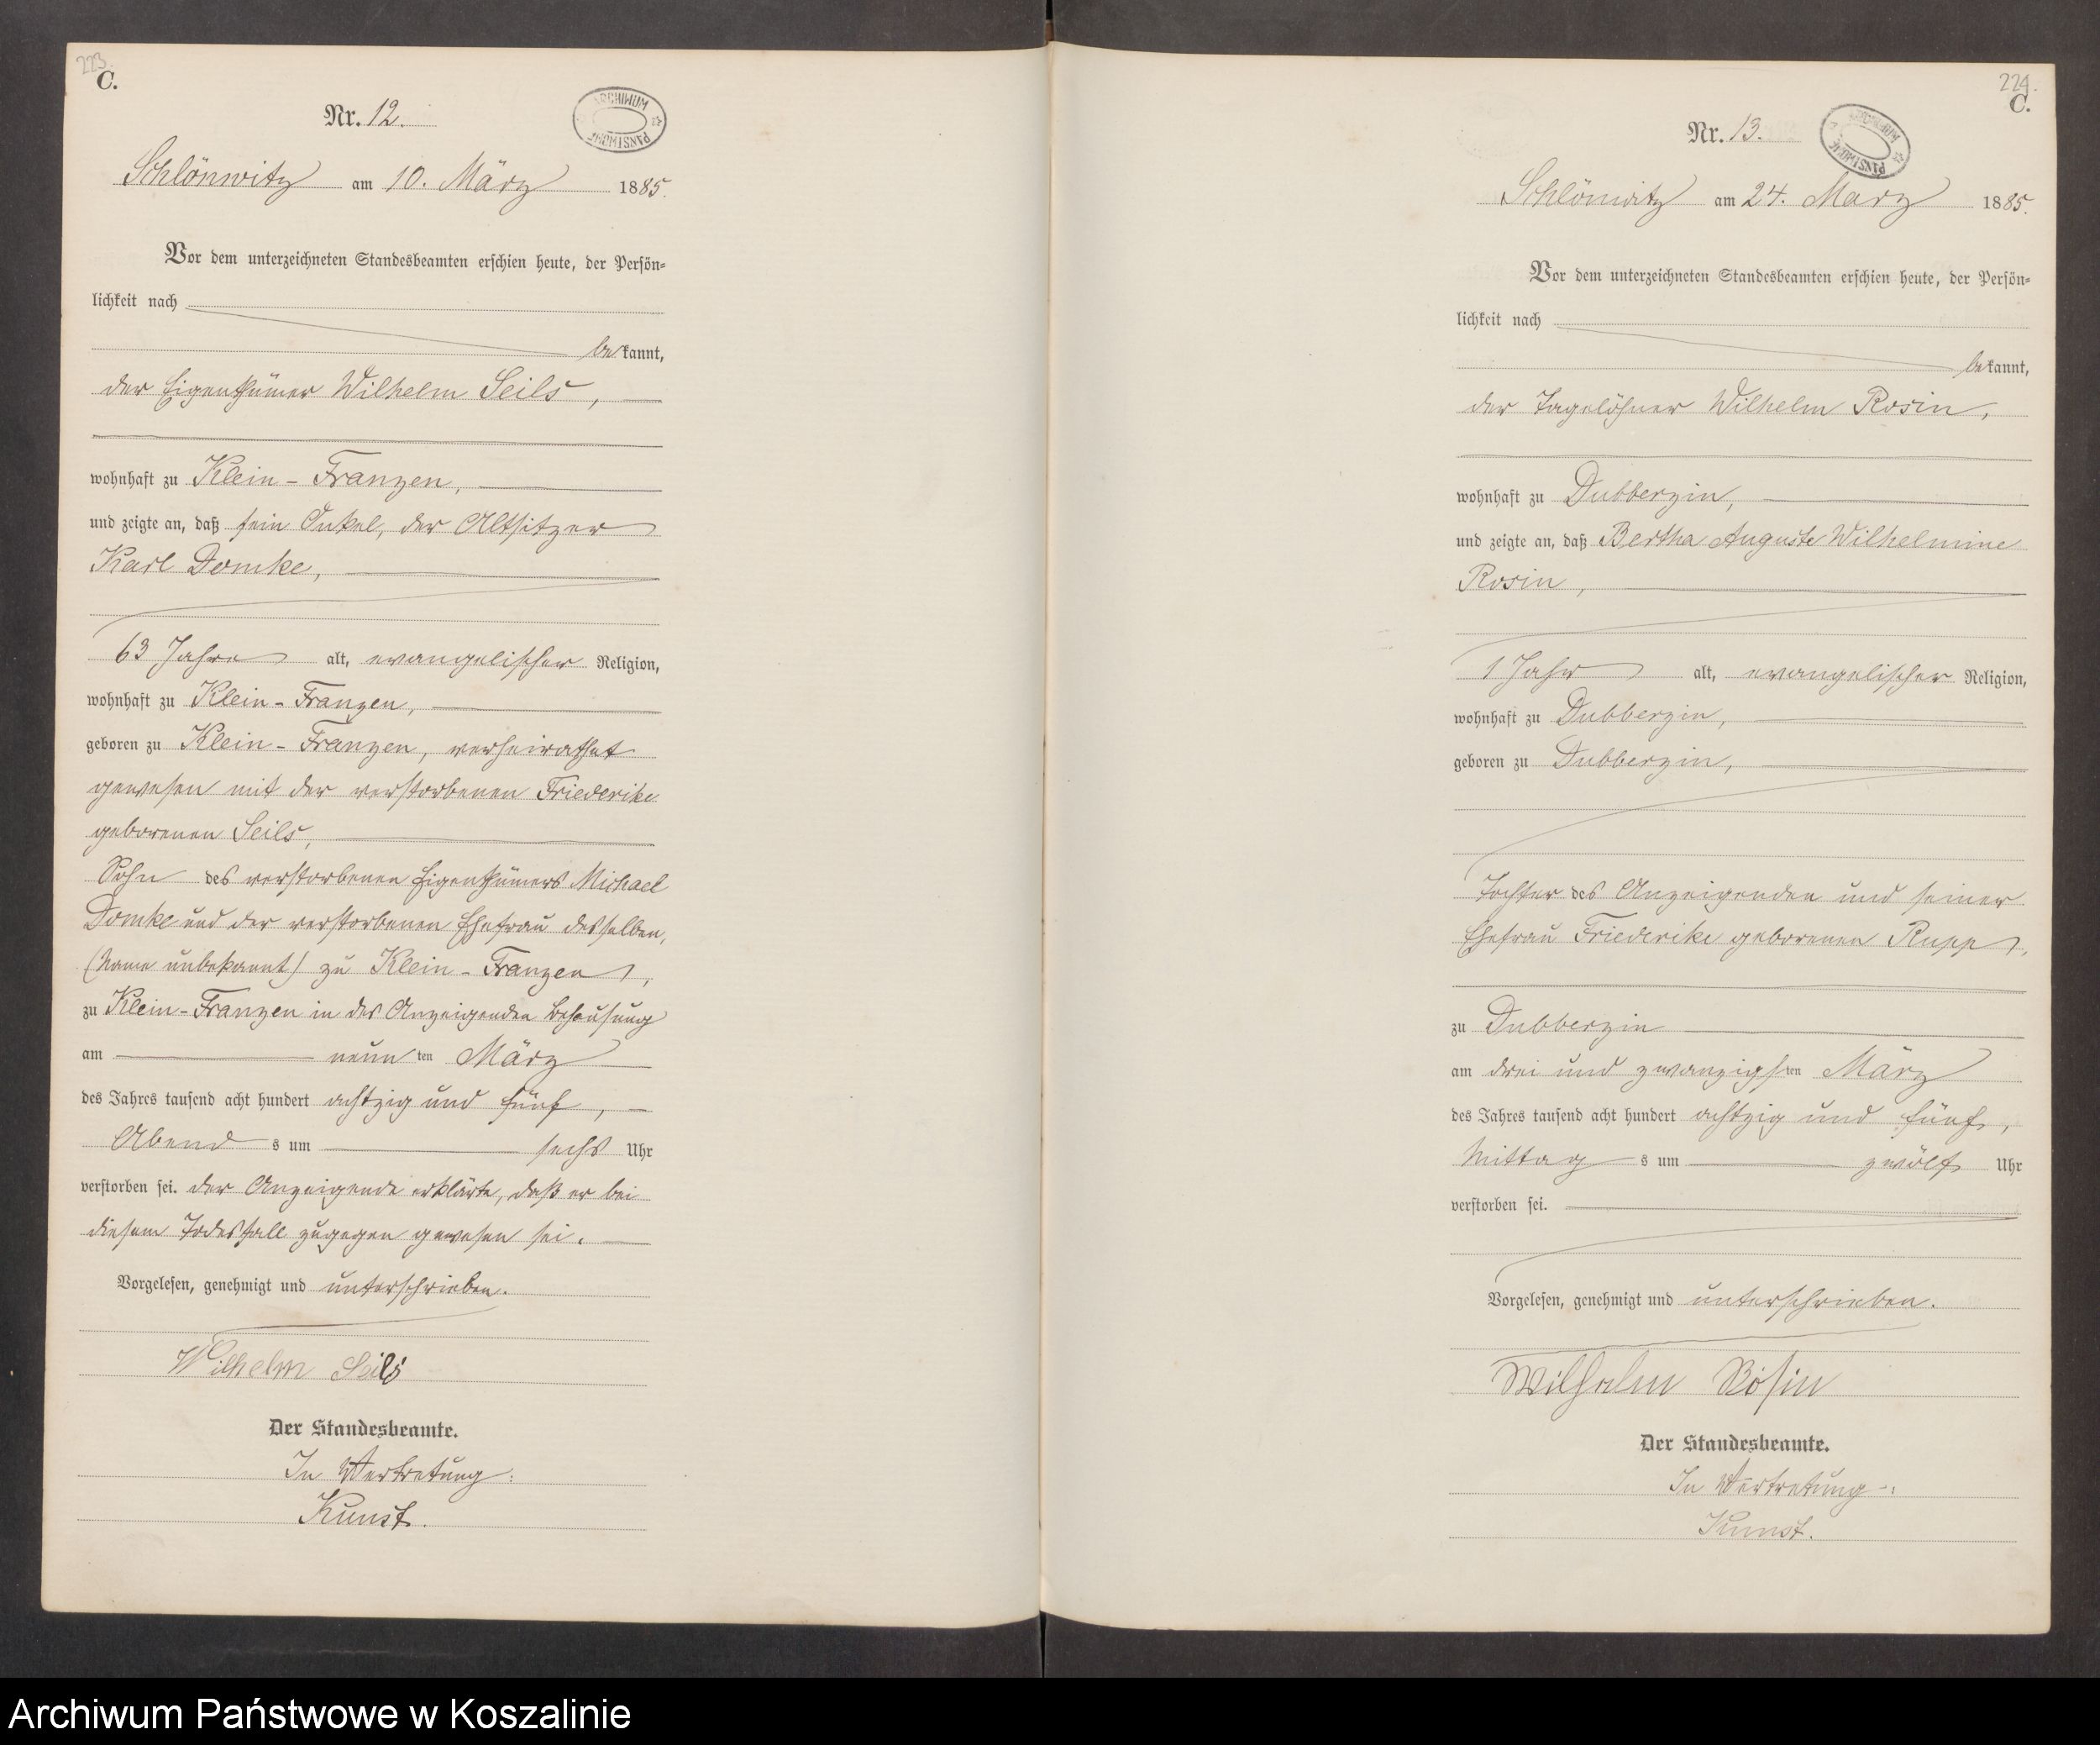 223.
C.
Nr. 12.
ARCHIWUM PAŃSTWOWE
Schlönwitz am 10. März 1885.
Vor dem unterzeichneten Standesbeamten erschien heute, der Persön-
lichkeit nach
bekannt,
der Eigenthümer Wilhelm Seils,
wohnhaft zu Klein-Franzen,
und zeigte an, daß sein Onkel, der Altsitzer
Karl Domke,
63 Jahre alt, evangelischer Religion,
wohnhaft zu Klein-Franzen,
geboren zu Klein-Franzen, verheirathet
gewesen mit der verstorbenen Friederike
geborenen Seils,
Sohn des verstorbenen Eigenthümers Michael
Domke und der verstorbenen Ehefrau desselben,
(Name unbekannt) zu Klein-Franzen,
zu Klein-Franzen in des Anzeigenden Behausung
am neunten März
des Jahres tausend acht hundert achtzig und fünf,
Abends um sechs Uhr
verstorben sei. der Anzeigende erklärte, daß er bei
diesem Todesfall zugegen gewesen sei.
Vorgelesen, genehmigt und unterschrieben.
Wilhelm Seils
Der Standesbeamte.
In Vertretung:
Kunst.
224.
C.
Nr. 13.
ARCHIWUM PAŃSTWOWE
Schlönwitz am 24. März 1885.
Vor dem unterzeichneten Standesbeamten erschien heute, der Persön-
lichkeit nach
bekannt,
der Tagelöhner Wilhelm Rosin,
wohnhaft zu Dubberzin,
und zeigte an, daß Bertha Auguste Wilhelmine
Rosin,
1 Jahr alt, evangelischer Religion,
wohnhaft zu Dubberzin,
geboren zu Dubberzin,
Tochter des Anzeigenden und seiner
Ehefrau Friederike geborenen Rupp,
zu Dubberzin
am drei und zwanzigsten März
des Jahres tausend acht hundert achtzig und fünf,
Mittags um zwölf Uhr
verstorben sei.
Vorgelesen, genehmigt und unterschrieben.
Wilhelm Rosin
Der Standesbeamte.
In Vertretung:
Kunst.
Archiwum Państwowe w Koszalinie